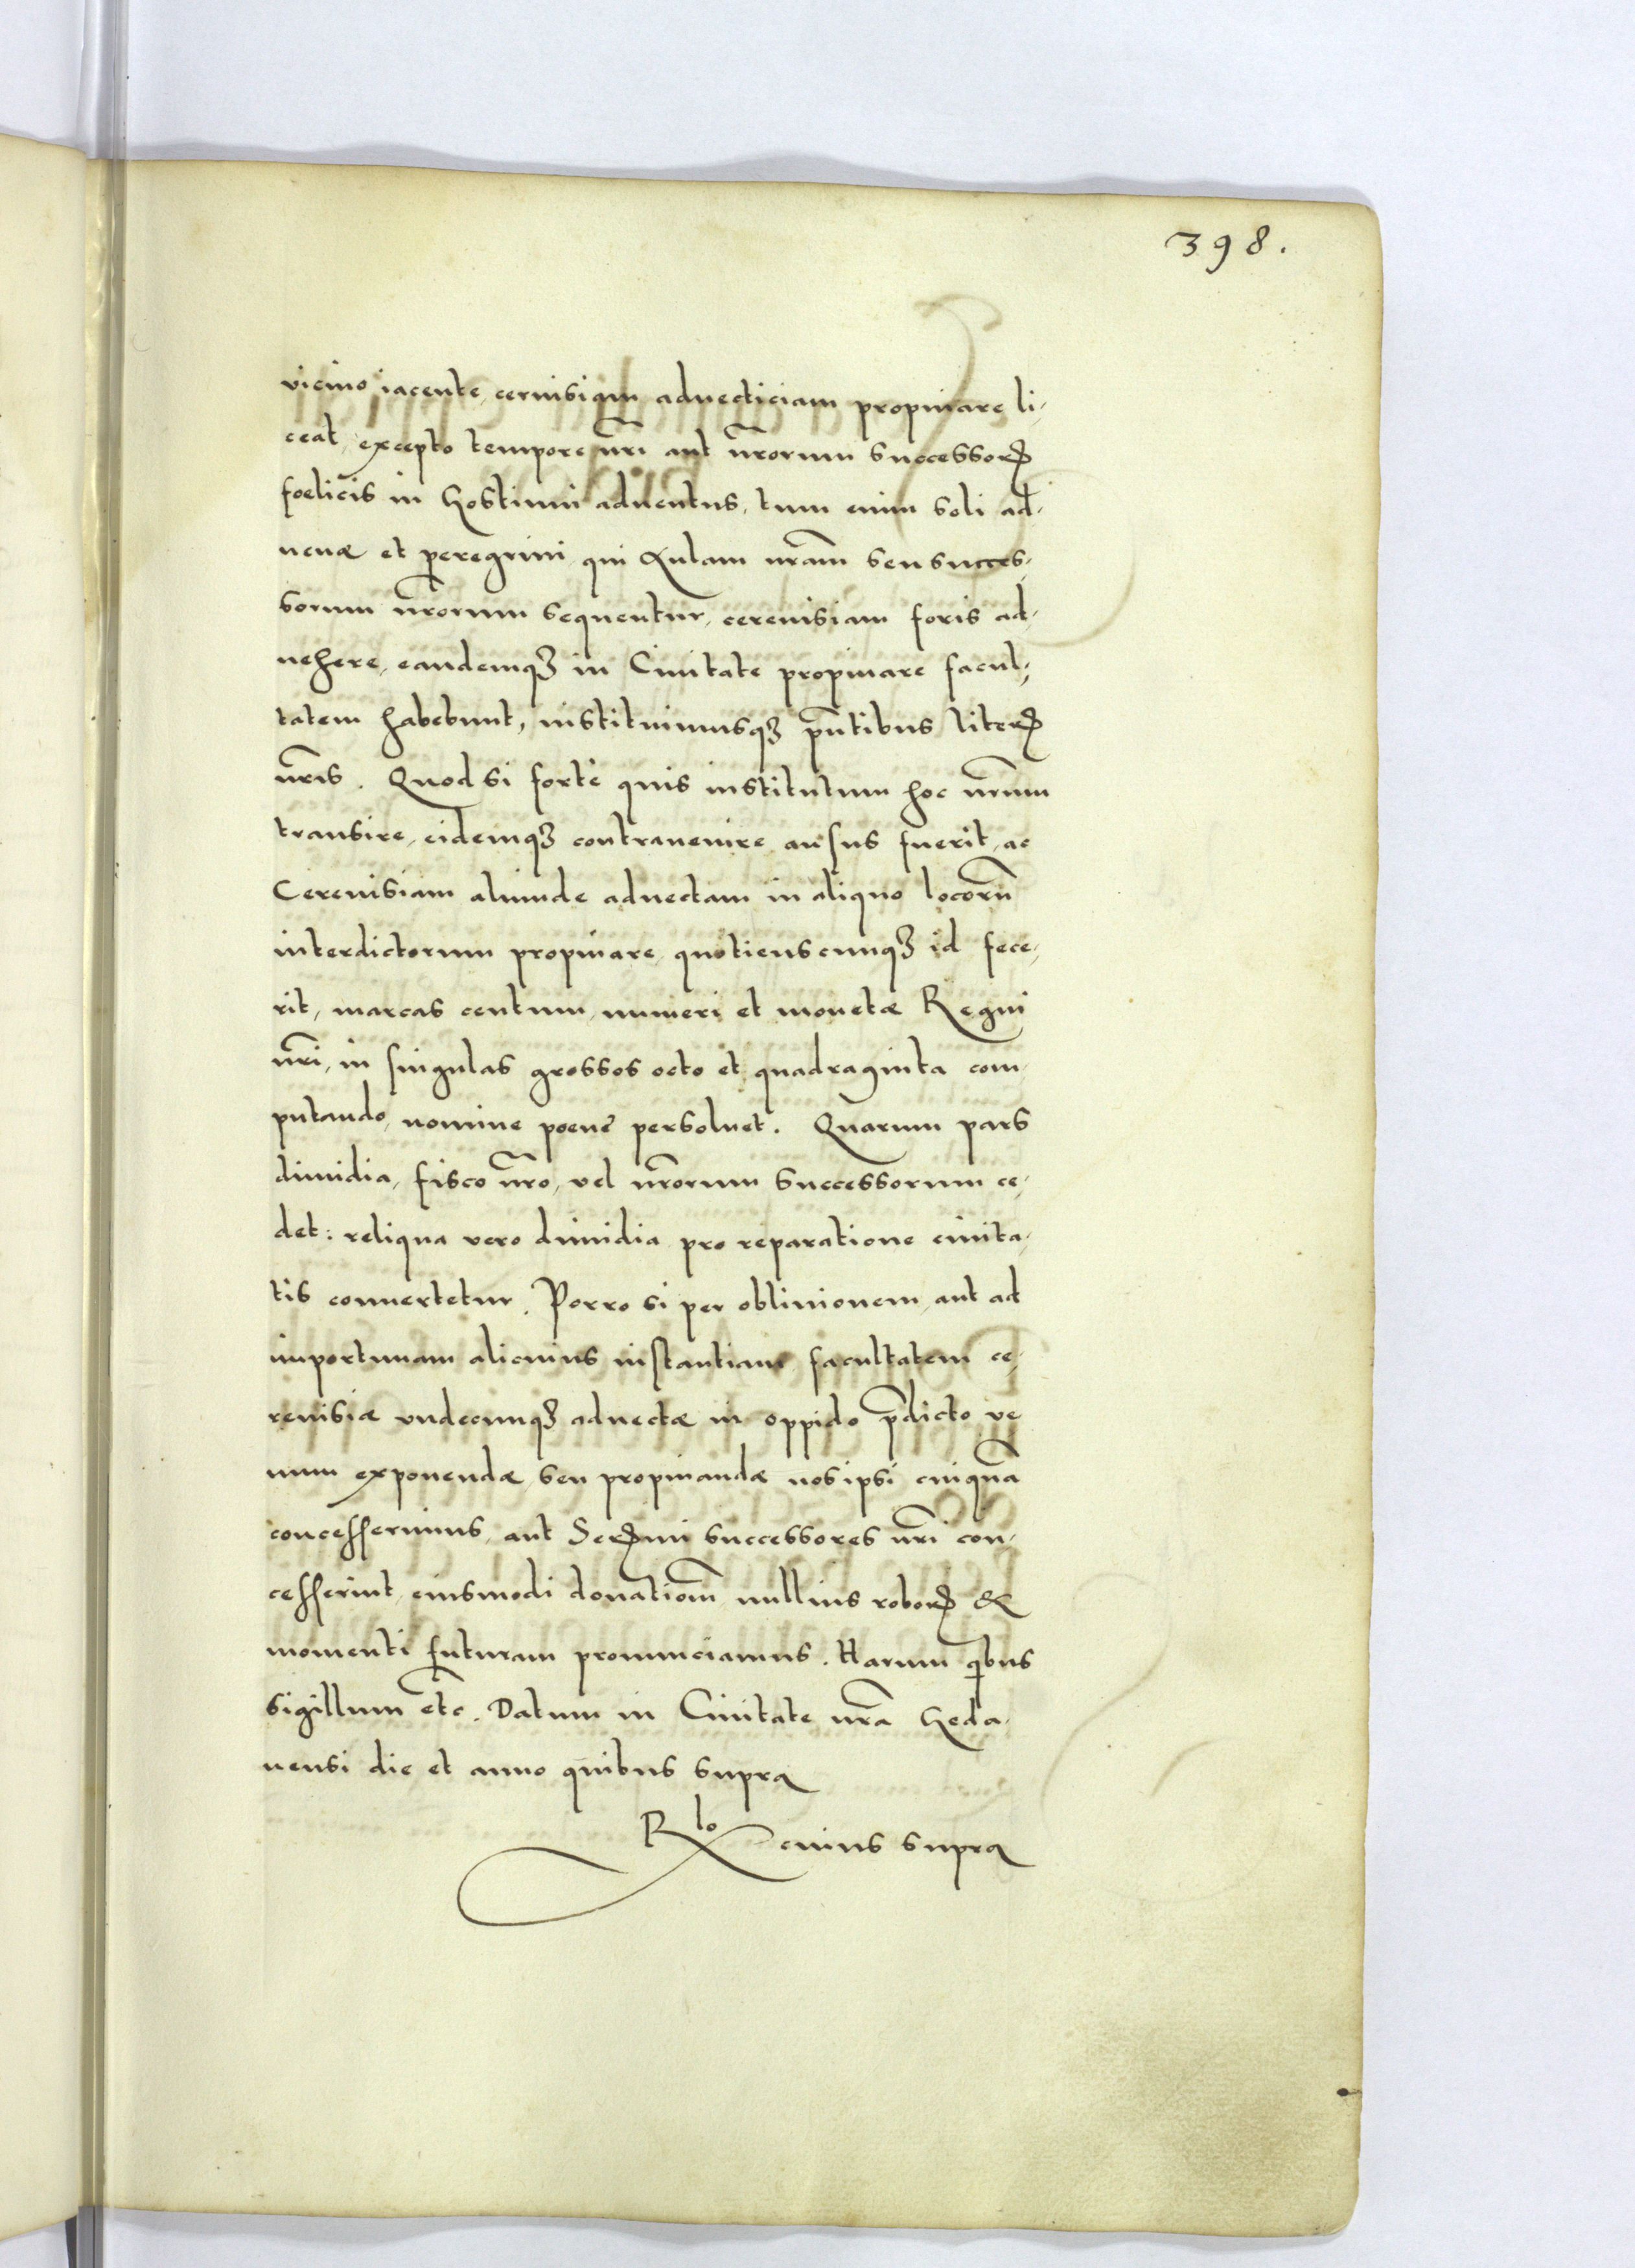 398.
vicino iacente, cervisiam advecticiam propinare li-
ceat, excepto tempore nr̃i aut nr̃orum successorꝭ
foelicis in hostium adventus, tum enim soli ad-
venæ et peregrini qui Aulam nr̃am seu succes-
sorum nr̃orum sequentur, cerevisiam foris ad-
vehere, eandemqꝫ in Civitate propinare facul-
tatem habebunt, instituimusqꝫ pñtibus literꝭ
nr̃is. Quod si fortè quis institutum hoc nr̃um
transire, eidemqꝫ contravenire ausus fuerit, ac
Cerevisiam aliunde advectam in aliquo locorũ
interdictorum propinare, quotienscunqꝫ id fece-
rit, marcas centum, numeri et monetæ Regni
nr̃i, in singulas grossos octo et quadraginta com-
putando, nomine poenę persolvet. Quarum pars
dimidia, fisco nr̃o, vel nr̃orum successorum ce-
det: reliqua vero dimidia pro reparatione civita-
tis convertetur. Porro si per oblivionem, aut ad
importunam alicuius instantiam facultatem ce-
revisiæ undecunqꝫ advectæ in oppido p̃dicto ve
num exponendæ seu propinandæ nos ipsi cuiquã
concesserimus, aut Serꝭmi successores nr̃i con-
cesserint, eiusmodi donatiom̃ nullius roborꝭ &
momenti futuram pronunciamus. Harum q̃bus
sigillum etc̃. Datum in Civitate nr̃a Geda-
nensi die et anno quibus supra
Rlo cuius supra